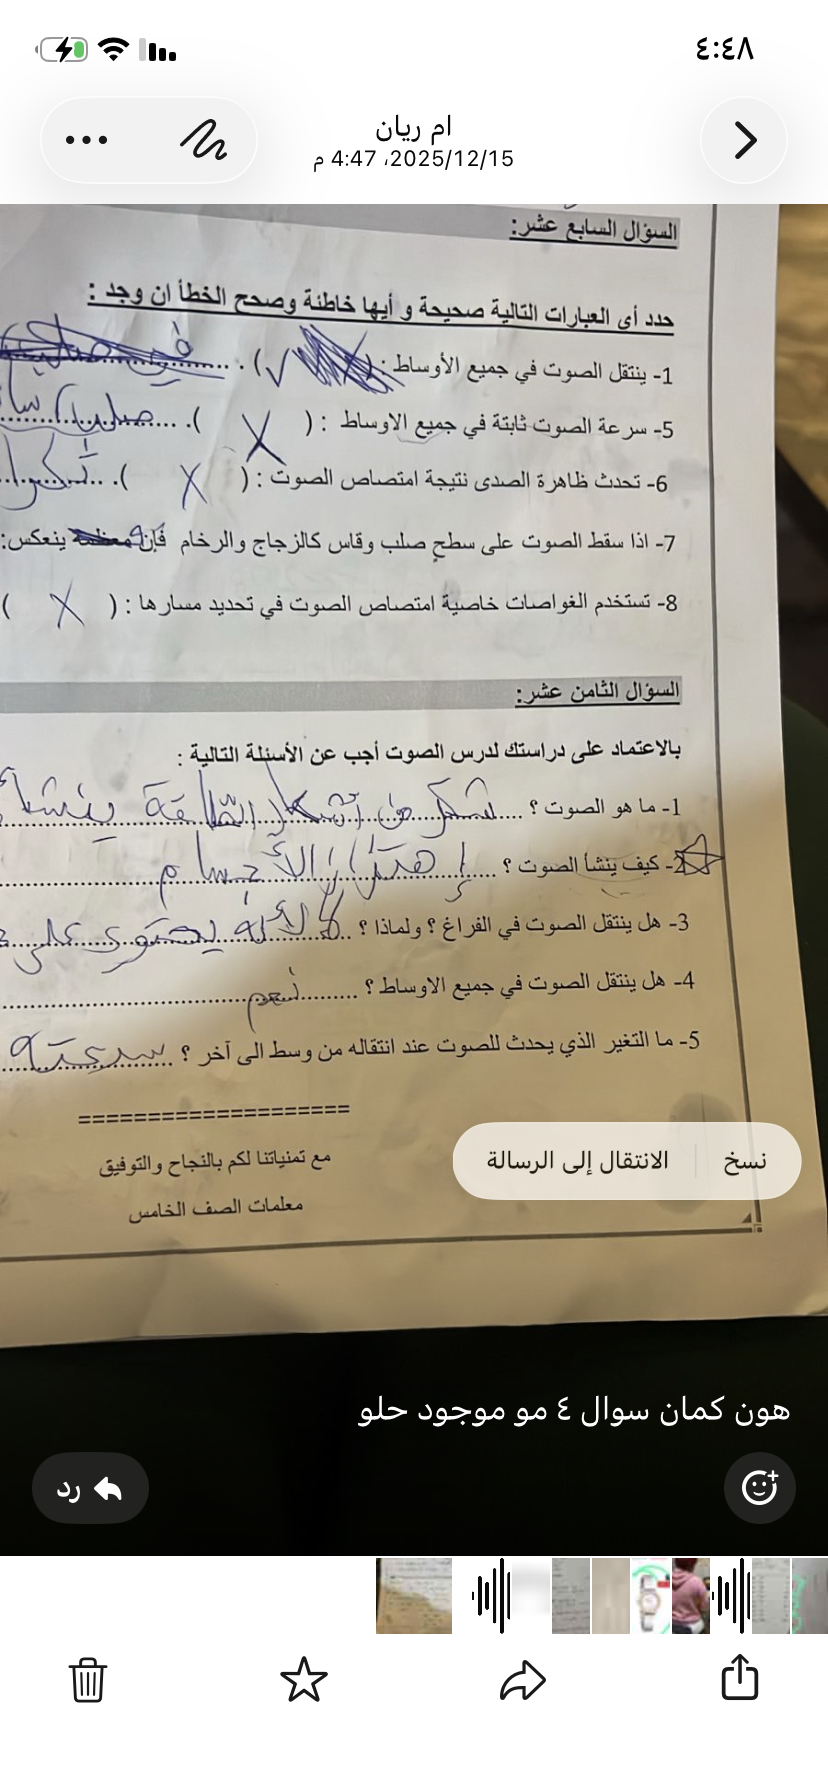 ٤:٤٨
ام ريان
2025/12/15، 4:47 م
السؤال السابع عشر:
حدد أي العبارات التالية صحيحة و أيها خاطئة وصحح الخطأ ان وجد :
1- ينتقل الصوت في جميع الأوساط : ( ✓ ) .
5- سرعة الصوت ثابتة في جميع الاوساط : ( X ) .
6- تحدث ظاهرة الصدى نتيجة امتصاص الصوت : ( X ) .
7- اذا سقط الصوت على سطح صلب وقاس كالزجاج والرخام فإن ينعكس:
8- تستخدم الغواصات خاصية امتصاص الصوت في تحديد مسارها : ( X )
السؤال الثامن عشر:
بالاعتماد على دراستك لدرس الصوت أجب عن الأسئلة التالية :
1- ما هو الصوت ؟ شكل من أشكال الطاقة ينشأ
2- كيف ينشأ الصوت ؟ إهتزاز الأجسام
3- هل ينتقل الصوت في الفراغ ؟ ولماذا ؟ لا لأنه يحتوي على
4- هل ينتقل الصوت في جميع الاوساط ؟ نعم
5- ما التغير الذي يحدث للصوت عند انتقاله من وسط الى آخر ؟ سرعته
====================
مع تمنياتنا لكم بالنجاح والتوفيق
معلمات الصف الخامس
نسخ
الانتقال إلى الرسالة
هون كمان سوال ٤ مو موجود حلو
رد